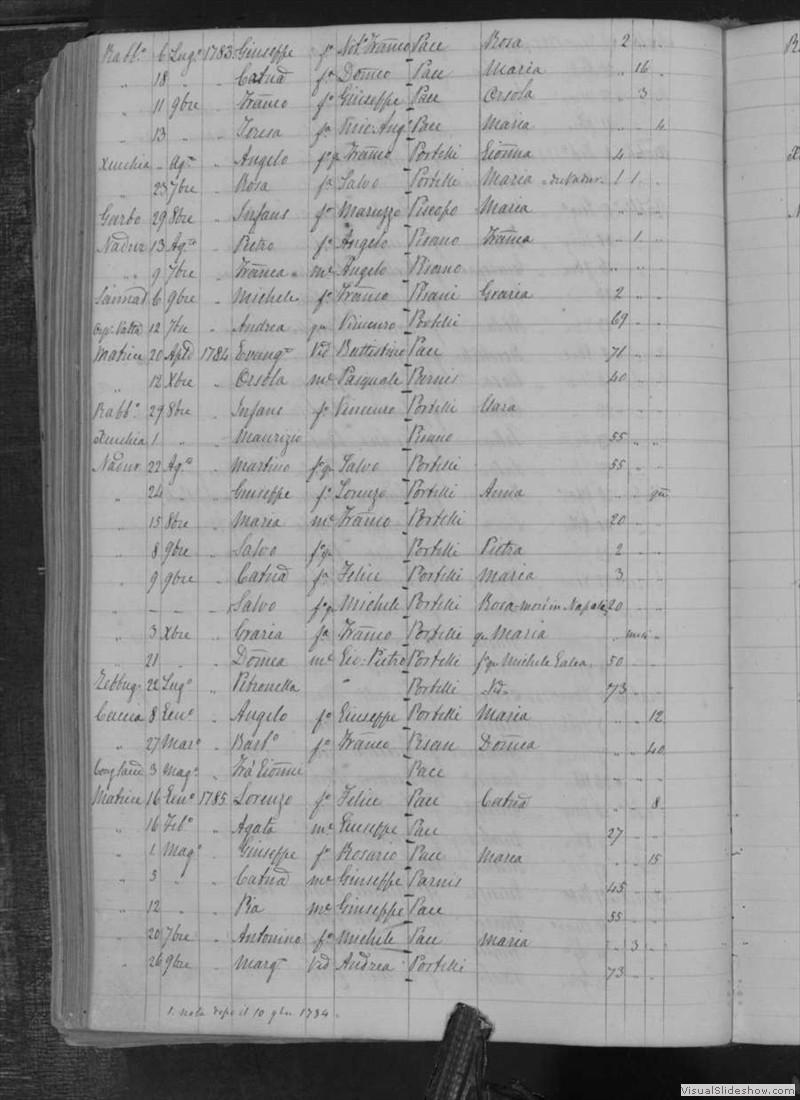 Rabb.o 6 Lug.o 1783 Giuseppe f.o Not.o Franco Pace Rosa 2 „ „
„ 18 „ „ Catnã f.a Dom̃co Pace Maria „ 16 „
„ 11 9bre „ Franco f.o Giuseppe Pace Orsola „ 3 „
„ 13 „ „ Teresa f.a Pace Maria „ „ 4
Xeuchia „ Ag.to „ Angelo Franco Portelli Giõnna 4 „ „
„ 23 7bre „ Rosa f.a Salvo Portelli Maria 1 1 „
Garbo 29 8bre „ Infans f.o Maruzzo Piscopo Maria „ „ „
Nadur 13 Ag.to „ Pietro f.o Angelo Pisano Franca „ 1 „
„ 9 7bre „ Franca m.e Angelo Pisano „ „ „
Sannat 6 9bre „ Michele f.o Franco Pisani Grazia 2 „ „
12 7bre „ Andrea Vincenzo Portelli 69 „ „
Matrice 20 Aple 1784 Evang.ta Vid Battistino Pace 71 „ „
„ 12 Xbre „ Orsola m.e Pasquale Parnis 40 „ „
Rabb.o 29 8bre „ Infans f.o Vincenzo Portelli Clara „ „ „
Xeuchia 1 „ „ Maurizio Pisano 55 „ „
Nadur 22 Ag.to „ Martino Salvo Portelli 55 „ „
„ 24 „ Giuseppe f.o Lorenzo Portelli Anna „ „
„ 15 8bre „ Maria m.e Franco Portelli 20 „ „
„ 8 9bre „ Salvo Portelli Pietra 2 „ „
„ 9 9bre „ Catnã f.a Felice Portelli Maria 3 „ „
„ – – „ Salvo Michele Portelli Rosa morì in Napoli 20 „ „
„ 3 Xbre „ Grazia f.a Franco Portelli q. Maria „ „
„ 21 „ „ Dom̃ca m.e Gio: Pietro Portelli Michele Galea 50 „ „
Zebbug 22 Lug.o „ Petronella „ Portelli Vid. 73 „ „
Caccia 8 Gen.o „ Angelo f.o Giuseppe Portelli Maria „ „ 12
„ 27 Mar.o „ Barb.a f.a Franco Pisan Dom̃ca „ „ 40
3 Mag.o „ Fra Giõnni Pace „ „ „
Matrice 16 Gen.o 1785 Lorenzo f.o Felice Pace Catnã „ „ 8
„ 16 Feb.o „ Agata m.e Giuseppe Pace 27 „ „
„ 1 Mag.o „ Giuseppe f.o Rosario Pace Maria „ „ 15
„ 3 „ „ Catnã m.e Giuseppe Parnis 45 „ „
„ 12 „ „ Pia m.e Giuseppe Pace 55 „ „
„ 20 7bre „ Antonino f.o Michele Pace Maria „ 3 „
„ 26 9bre „ Marg.ta Vid Andrea Portelli 73 „ „
1. nota dopo il 10 9bre 1784.
VisualSlideshow.com